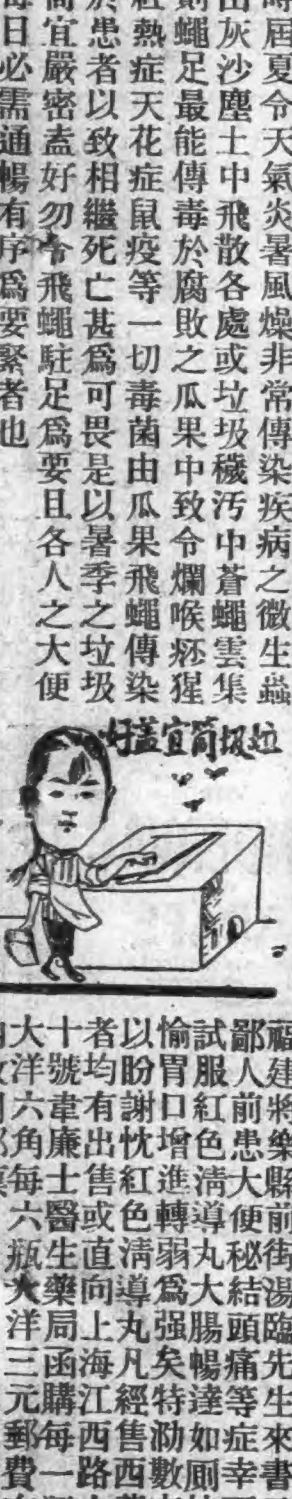 時屆夏令天氣炎暑風燥非常傳染疾病之微生蟲
由灰沙塵土中飛散各處或垃圾穢汚中蒼蠅雲集
則蠅足最能傳毒於腐敗之瓜果中致令爛喉痧猩
紅熱症天花症鼠疫等一切毒菌由瓜果飛蠅傳染
於患者以致相繼死亡甚爲可畏是以暑季之垃圾
筒宜嚴密盍好勿令飛蠅駐足爲要且各人之大便
每日必需通暢有序爲要緊者也
垃圾筒宜盖好
福建將樂縣前街湯臨先生來書
鄙人前患大便秘結頭痛等症幸
試服紅色淸導丸大腸暢達如厠
愉胃口增進轉弱爲强矣特泐數
以盼謝忱紅色淸導丸凡經售西
者均有出售或直向上海江西路
十號韋廉士醫生藥局函購每一
大洋六角每六瓶大洋三元郵費